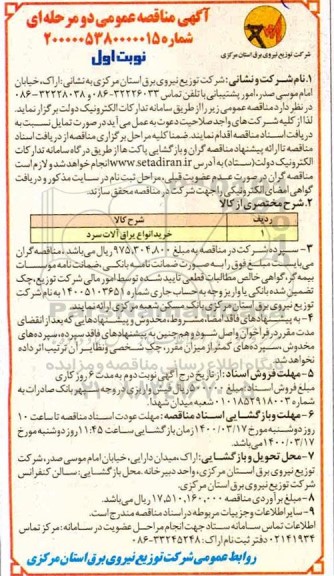 آگهی مناقصه عمومی دو مرحله ای
شماره ۲۰۰۰۰۰۵۳۸۰۰۰۰۰۱۵
نوبت اول
شرکت توزیع نیروی برق استان مرکزی
۱.نام شرکت و نشانی: شرکت توزیع نیروی برق استان مرکزی به نشانی: اراک، خیابان
امام موسی صدر، امور پشتیبانی با تلفن تماس ۳۲۲۲۶۰۳۳-۰۸۶ و ۳۲۲۲۸۰۳۸-۰۸۶
در نظر دارد مناقصه عمومی زیر را از طریق سامانه تدارکات الکترونیک دولت برگزار نماید.
لذا از کلیه شرکت های واجد صلاحیت دعوت به عمل می آید در صورت تمایل نسبت به
دریافت اسناد مناقصه اقدام نمایند. ضمنا کلیه مراحل برگزاری مناقصه از دریافت اسناد
مناقصه تا ارائه پیشنهاد مناقصه گران و بازگشایی پاکت ها از طریق درگاه سامانه تدارکات
الکترونیک دولت (ستاد) به آدرس www.setadiran.ir انجام خواهد شد و لازم است
مناقصه گران در صورت عدم عضویت قبلی، مراحل ثبت نام در سایت مذکور و دریافت
گواهی امضای الکترونیکی را جهت شرکت در مناقصه محقق سازند.
۲.شرح مختصری از کالا
ردیف شرح کالا
۱ خرید انواع یراق آلات سرد
۳- سپرده شرکت در مناقصه به مبلغ ۹۷۵,۳۰۴,۸۰۰ ریال می باشد، مناقصه گران
می بایست مبلغ فوق را به صورت ضمانت نامه بانکی، ضمانت نامه موسسات
بیمه گر، گواهی خالص مطالبات قطعی تایید شده توسط امور مالی شرکت توزیع، چک
تضمین شده بانکی یا واریز وجه به حساب جاری شماره ۱۴۰۰۵۱۰۳۶۵۱ به نام شرکت
توزیع نیروی برق استان مرکزی بانک مسکن شعبه مرکزی ارائه نمایند.
۴- به پیشنهادهای فاقد امضاء، مشروط، مخدوش و پیشنهادهایی که بعد از انقضای
مدت مقرر در فراخوان واصل شود و همچنین به پیشنهادهای فاقد سپرده، سپرده های
مخدوش، سپرده های کمتر از میزان مقرر، چک شخصی و نظایر آن ترتیب اثر داده
نخواهد شد.
۵- مهلت فروش اسناد: از تاریخ درج آگهی نوبت دوم به مدت ۶ روز کاری
مبلغ فروش اسناد: مبلغ ریال واریزی در وجه سپهر بانک صادرات به
شماره ۰۱۰۱۸۵۲۹۱۸۰۰۳ شعبه میدان شهدا.
۶- مهلت و بازگشایی اسناد مناقصه: مهلت عودت اسناد مناقصه تا ساعت ۱۰
روز دوشنبه مورخ ۱۴۰۰/۰۳/۱۷ زمان بازگشایی ساعت ۱۱:۴۵ روز دوشنبه مورخ
۱۴۰۰/۰۳/۱۷ می باشد.
۷- محل تحویل و بازگشایی: اراک، میدان دارایی، خیابان امام موسی صدر، شرکت
توزیع نیروی برق استان مرکزی، واحد دبیرخانه. محل بازگشایی: سالن کنفرانس
شرکت توزیع نیروی برق استان مرکزی.
۸- مبلغ برآوردی مناقصه ۱۷,۵۱۰,۱۶۰,۰۰۰ ریال می باشد.
۹- سایر اطلاعات و جزییات مربوطه در اسناد مناقصه مندرج است.
اطلاعات تماس سامانه ستاد جهت انجام مراحل عضویت در سامانه: مرکز تماس
۰۲۱۴۱۹۳۴ دفتر ثبت نام اراک: ۳۳۲۴۵۲۴۸-۰۸۶
روابط عمومی شرکت توزیع نیروی برق استان مرکزی